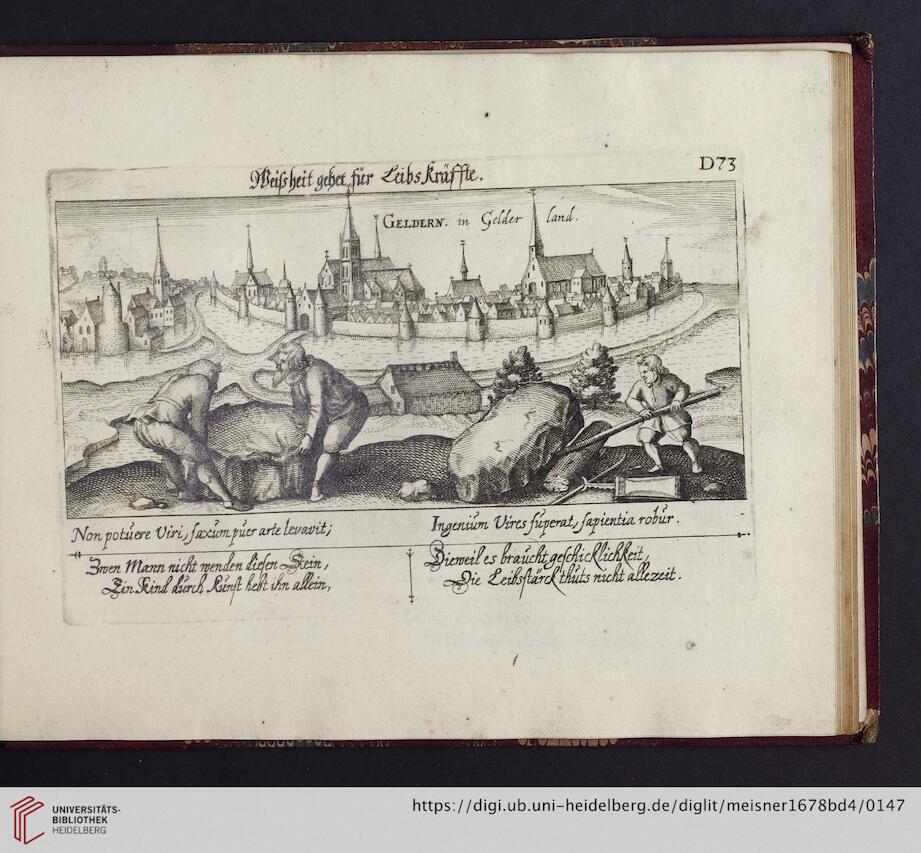 D73
Weißheit gehet für Leibs Kräffte.
GELDERN. in Gelderland.
Non potuere Viri, saxum puer arte levavit;
Ingenium Vires superat, sapientia robur.
Zwen Mann nicht wenden diesen Stein,
Ein Kind durch Kunst hebt ihn allein,
Dieweil es braucht geschicklichkeit,
Die Leibsstärck thuts nicht allezeit.
UNIVERSITÄTS-
BIBLIOTHEK
HEIDELBERG
https://digi.ub.uni-heidelberg.de/diglit/meisner1678bd4/0147